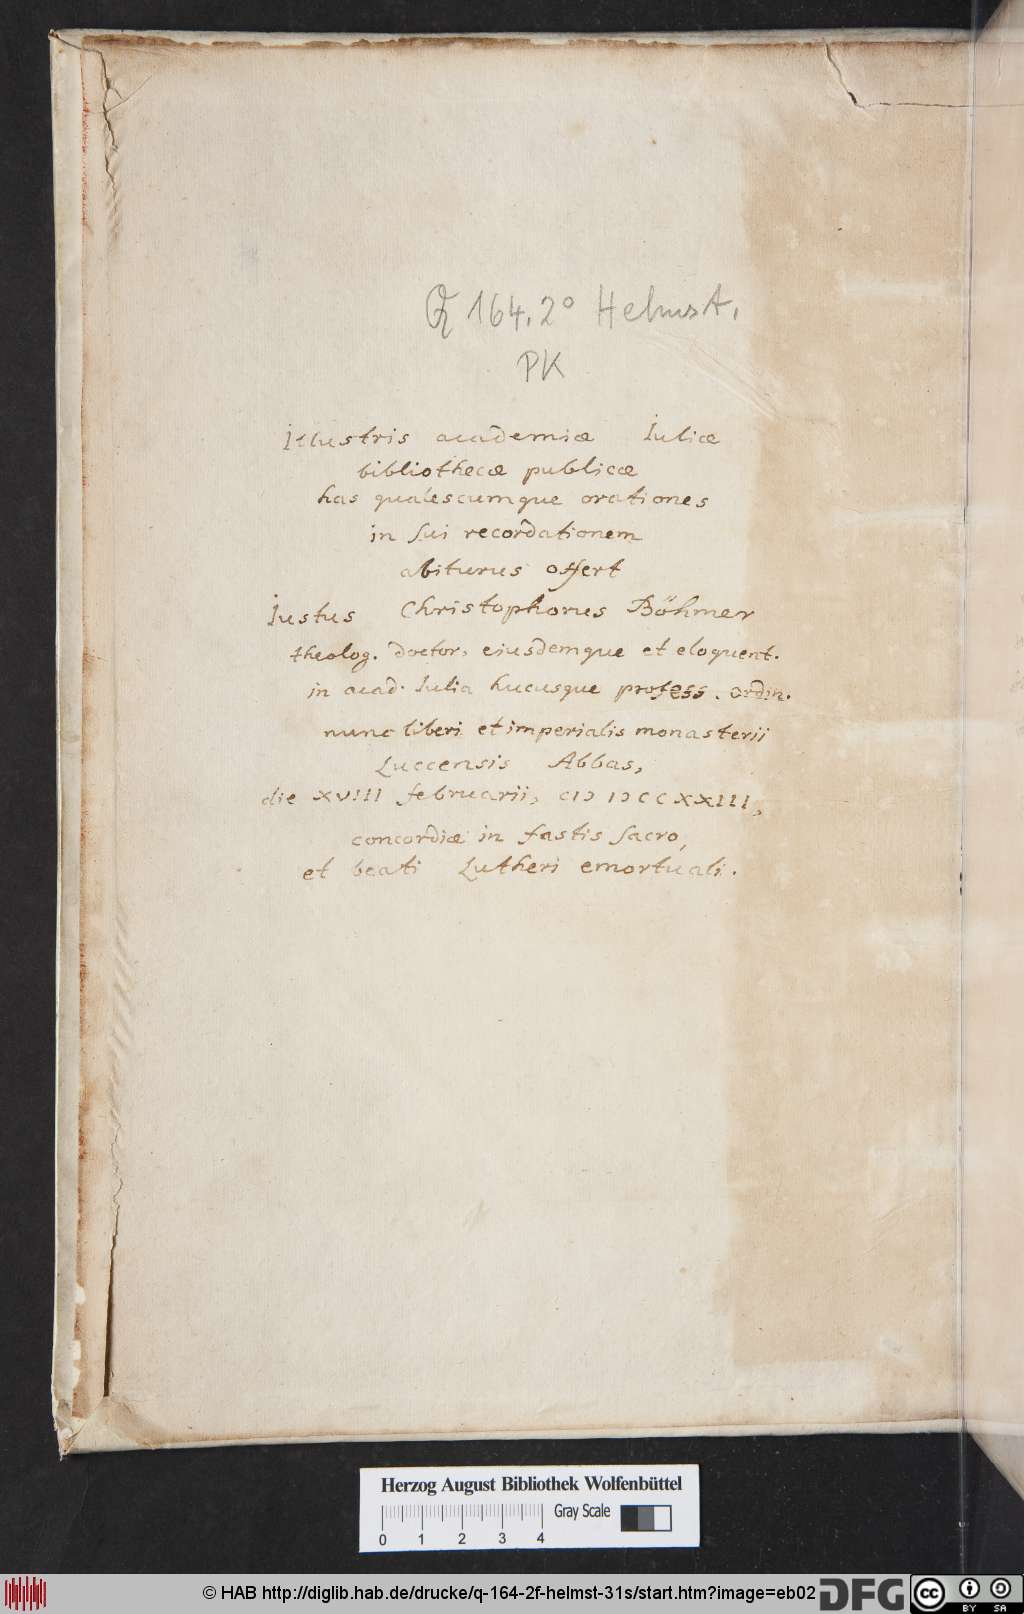 Q 164. 2° Helmst.
PK
Illustris academiæ Iuliæ
bibliothecæ publicæ
has qualescumque orationes
in sui recordationem
abiturus offert
Iustus Christophorus Böhmer
theolog. doctor, eiusdemque et eloquent.
in acad. Iulia hucusque profess. ordin.
nunc liberi et imperialis monasterii
Luccensis Abbas,
die XVIII februarii, CIↃ IↃCCXXIII,
concordiæ in fastis sacro,
et beati Lutheri emortuali.
Herzog August Bibliothek Wolfenbüttel
Gray Scale
0 1 2 3 4
© HAB http://diglib.hab.de/drucke/q-164-2f-helmst-31s/start.htm?image=eb02
DFG
cc BY SA